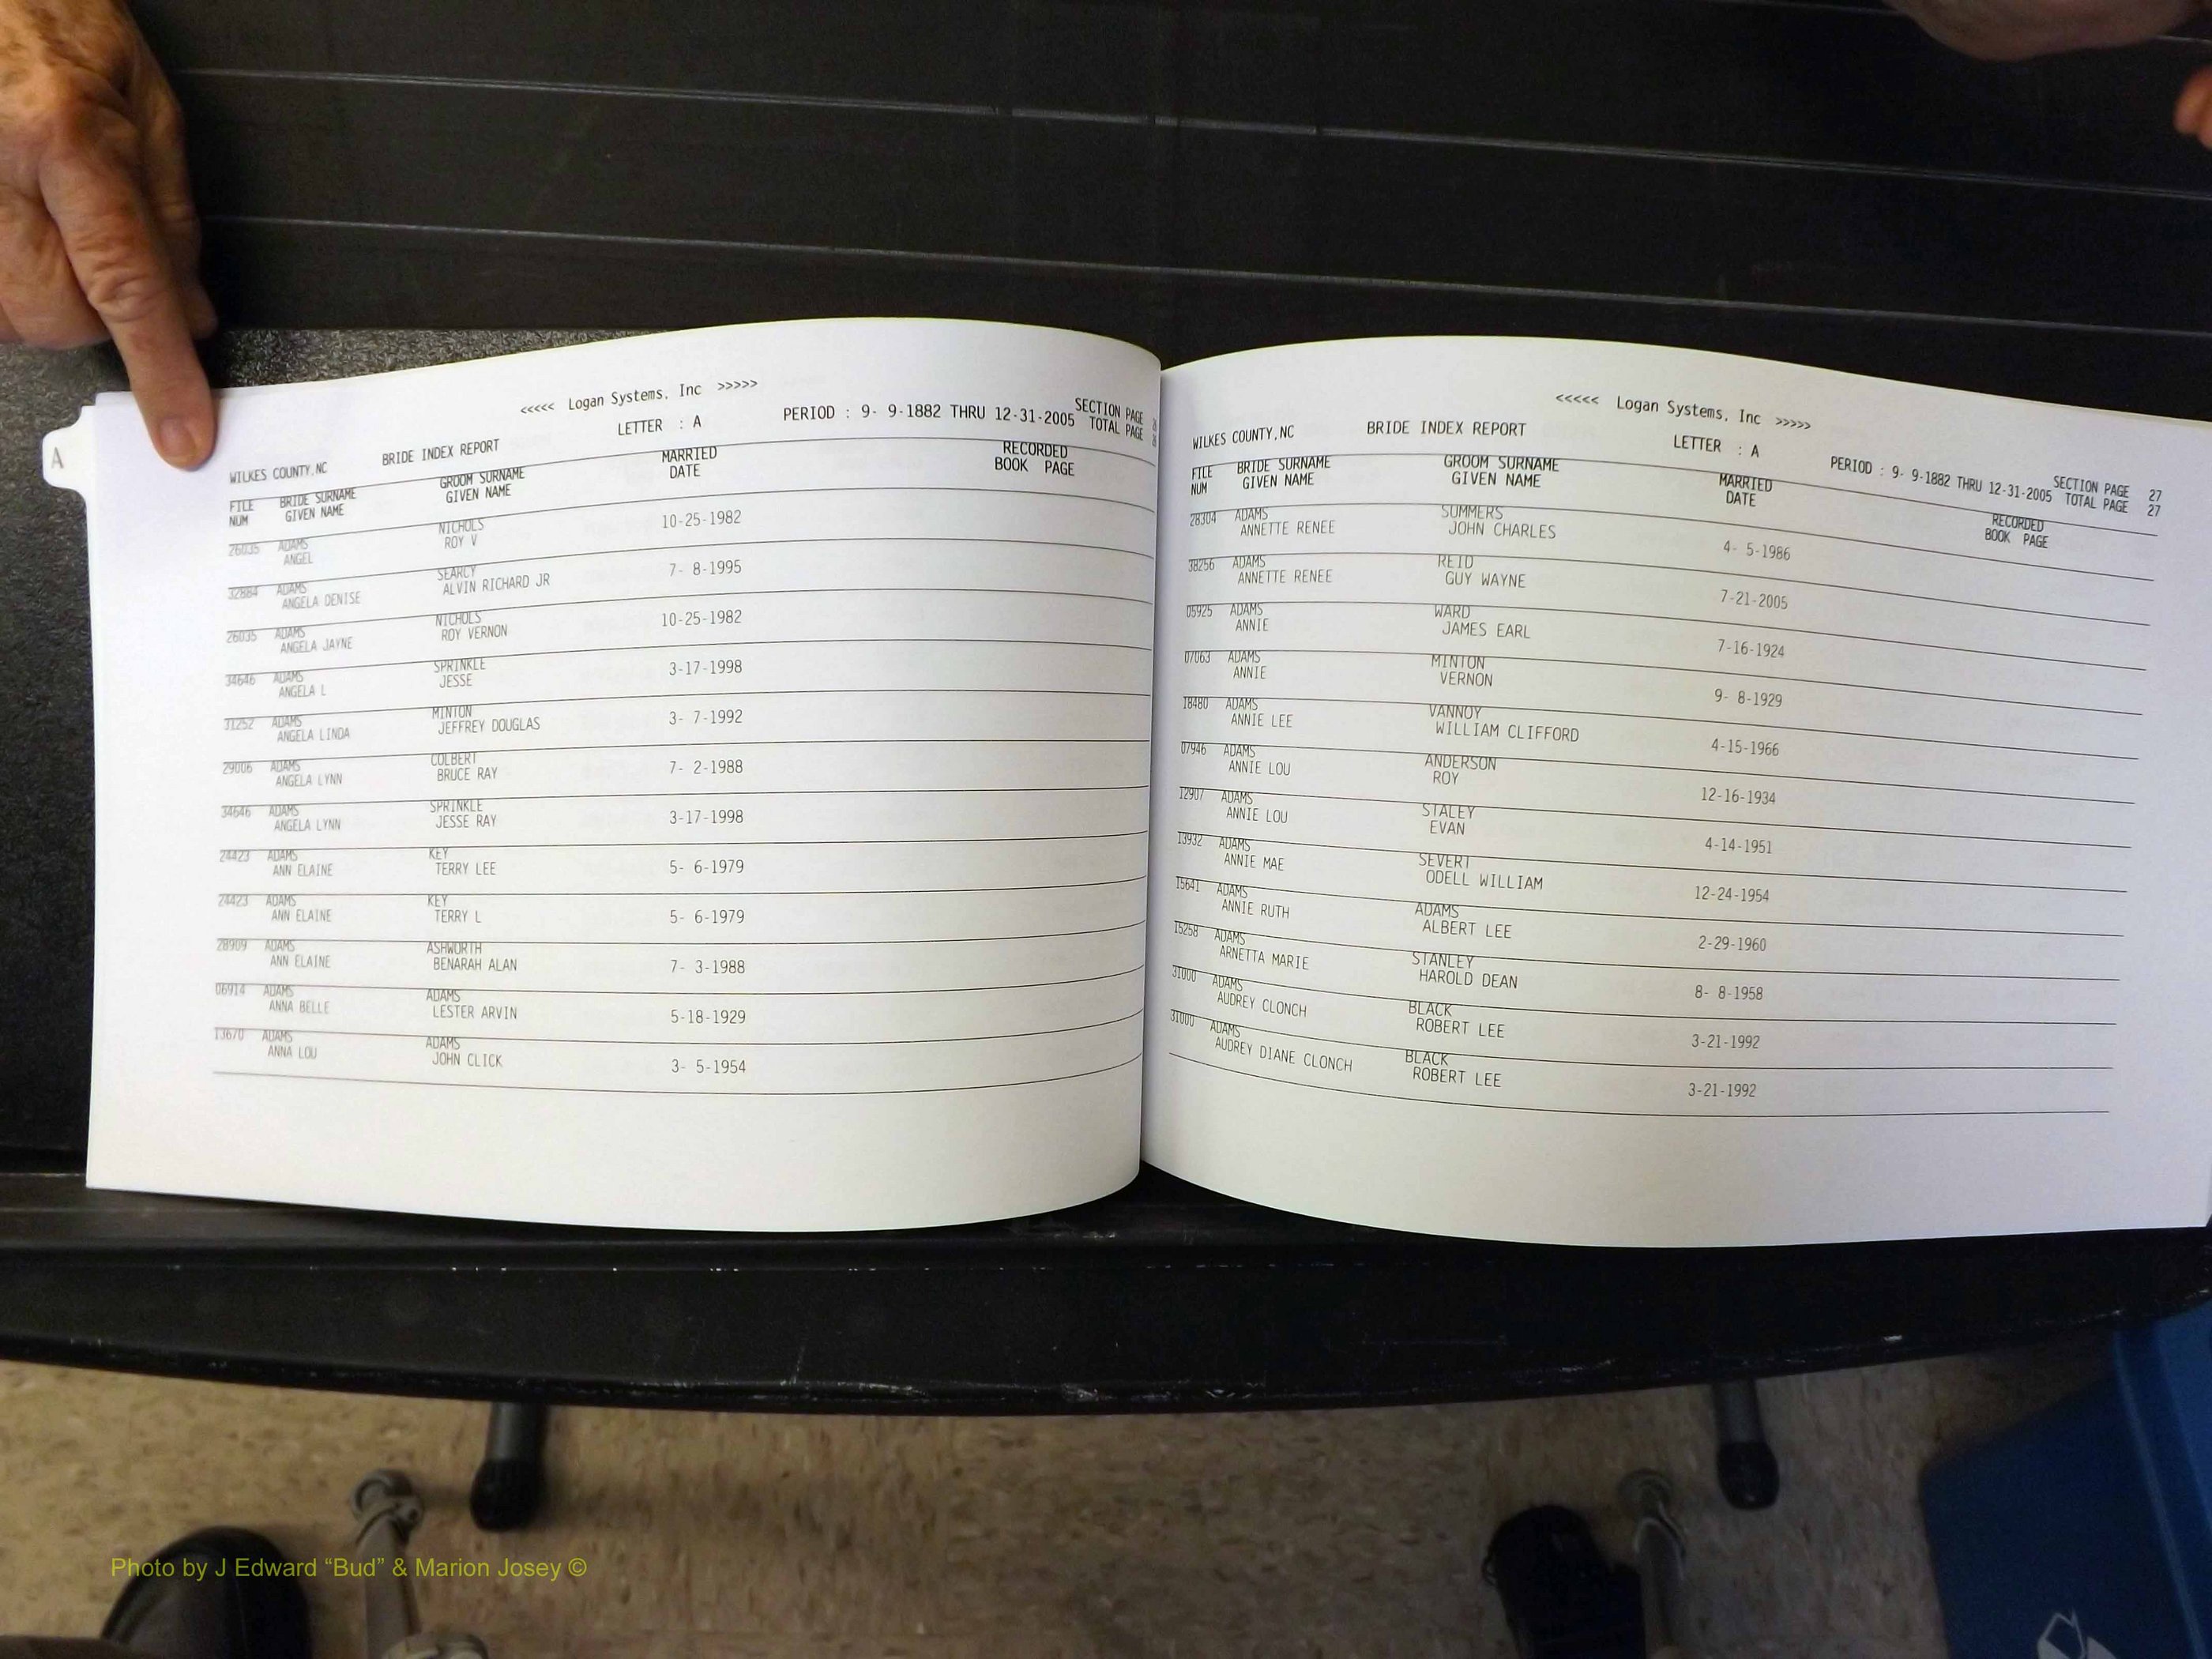 A
<<<<< Logan Systems, Inc >>>>>
WILKES COUNTY,NC BRIDE INDEX REPORT LETTER : A PERIOD : 9- 9-1882 THRU 12-31-2005 SECTION PAGE 26
TOTAL PAGE 26
FILE BRIDE SURNAME GROOM SURNAME MARRIED RECORDED
NUM GIVEN NAME GIVEN NAME DATE BOOK PAGE
26035 ADAMS NICHOLS 10-25-1982
ANGEL ROY V
32884 ADAMS SEARCY 7- 8-1995
ANGELA DENISE ALVIN RICHARD JR
26035 ADAMS NICHOLS 10-25-1982
ANGELA JAYNE ROY VERNON
34646 ADAMS SPRINKLE 3-17-1998
ANGELA L JESSE
31252 ADAMS MINTON 3- 7-1992
ANGELA LINDA JEFFREY DOUGLAS
29006 ADAMS COLBERT 7- 2-1988
ANGELA LYNN BRUCE RAY
34646 ADAMS SPRINKLE 3-17-1998
ANGELA LYNN JESSE RAY
24423 ADAMS KEY 5- 6-1979
ANN ELAINE TERRY LEE
24423 ADAMS KEY 5- 6-1979
ANN ELAINE TERRY L
28909 ADAMS ASHWORTH 7- 3-1988
ANN ELAINE BENARAH ALAN
06914 ADAMS ADAMS 5-18-1929
ANNA BELLE LESTER ARVIN
13670 ADAMS ADAMS 3- 5-1954
ANNA LOU JOHN CLICK
<<<<< Logan Systems, Inc >>>>>
WILKES COUNTY,NC BRIDE INDEX REPORT LETTER : A PERIOD : 9- 9-1882 THRU 12-31-2005 SECTION PAGE 27
TOTAL PAGE 27
FILE BRIDE SURNAME GROOM SURNAME MARRIED RECORDED
NUM GIVEN NAME GIVEN NAME DATE BOOK PAGE
28304 ADAMS SUMMERS 4- 5-1986
ANNETTE RENEE JOHN CHARLES
38256 ADAMS REID 7-21-2005
ANNETTE RENEE GUY WAYNE
05925 ADAMS WARD 7-16-1924
ANNIE JAMES EARL
07063 ADAMS MINTON 9- 8-1929
ANNIE VERNON
18480 ADAMS VANNOY 4-15-1966
ANNIE LEE WILLIAM CLIFFORD
07946 ADAMS ANDERSON 12-16-1934
ANNIE LOU ROY
12907 ADAMS STALEY 4-14-1951
ANNIE LOU EVAN
13932 ADAMS SEVERT 12-24-1954
ANNIE MAE ODELL WILLIAM
15641 ADAMS ADAMS 2-29-1960
ANNIE RUTH ALBERT LEE
15258 ADAMS STANLEY 8- 8-1958
ARNETTA MARIE HAROLD DEAN
31000 ADAMS BLACK 3-21-1992
AUDREY CLONCH ROBERT LEE
31000 ADAMS BLACK 3-21-1992
AUDREY DIANE CLONCH ROBERT LEE
Photo by J Edward “Bud” & Marion Josey ©